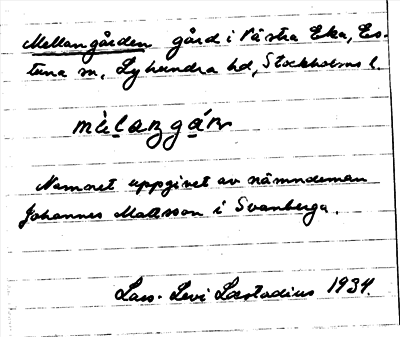 Mellangården gård i Västra Eka, Es-
tuna sn, Lyhundra hd, Stockholms l.
Namnet uppgivet av nämndeman
Johannes Mattsson i Svanberga.
Lars-Levi Læstadius 1934.